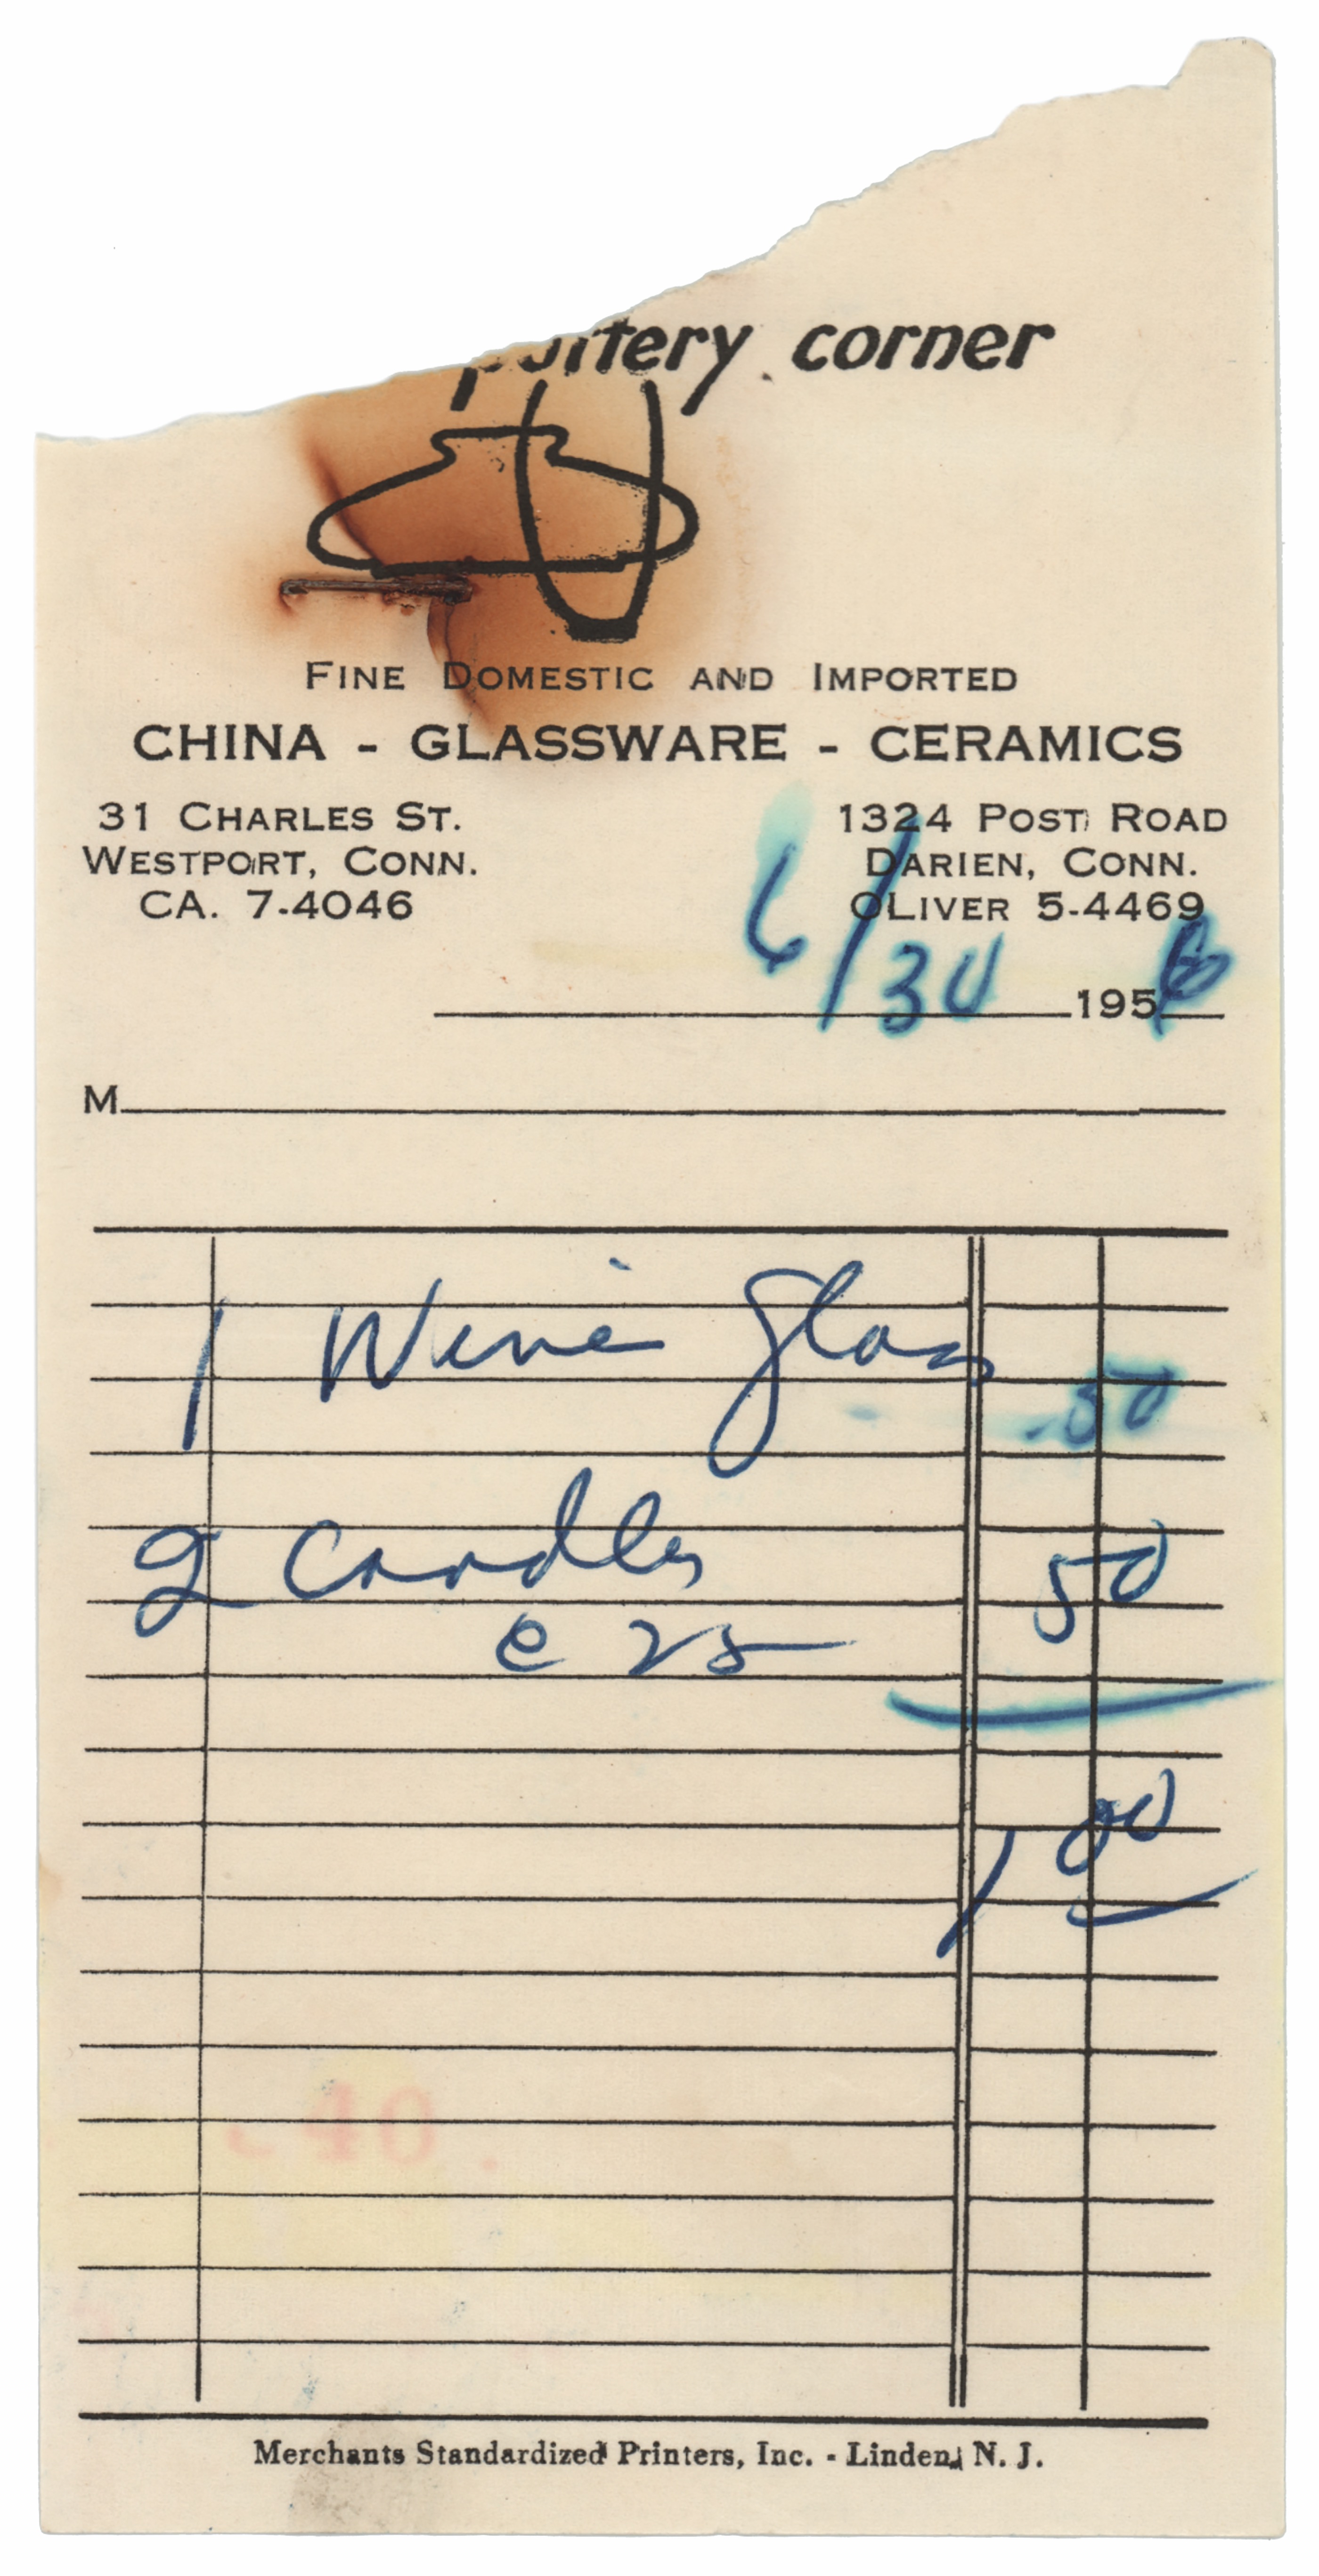 pottery corner
FINE DOMESTIC AND IMPORTED
CHINA - GLASSWARE - CERAMICS
31 CHARLES ST.
WESTPORT, CONN.
CA. 7-4046
1324 POST ROAD
DARIEN, CONN.
OLIVER 5-4469
6/30 1956
M
1 Wine Glass .50
2 Candles 50
@ 25
1 00
40.
Merchants Standardized Printers, Inc. - Linden, N. J.